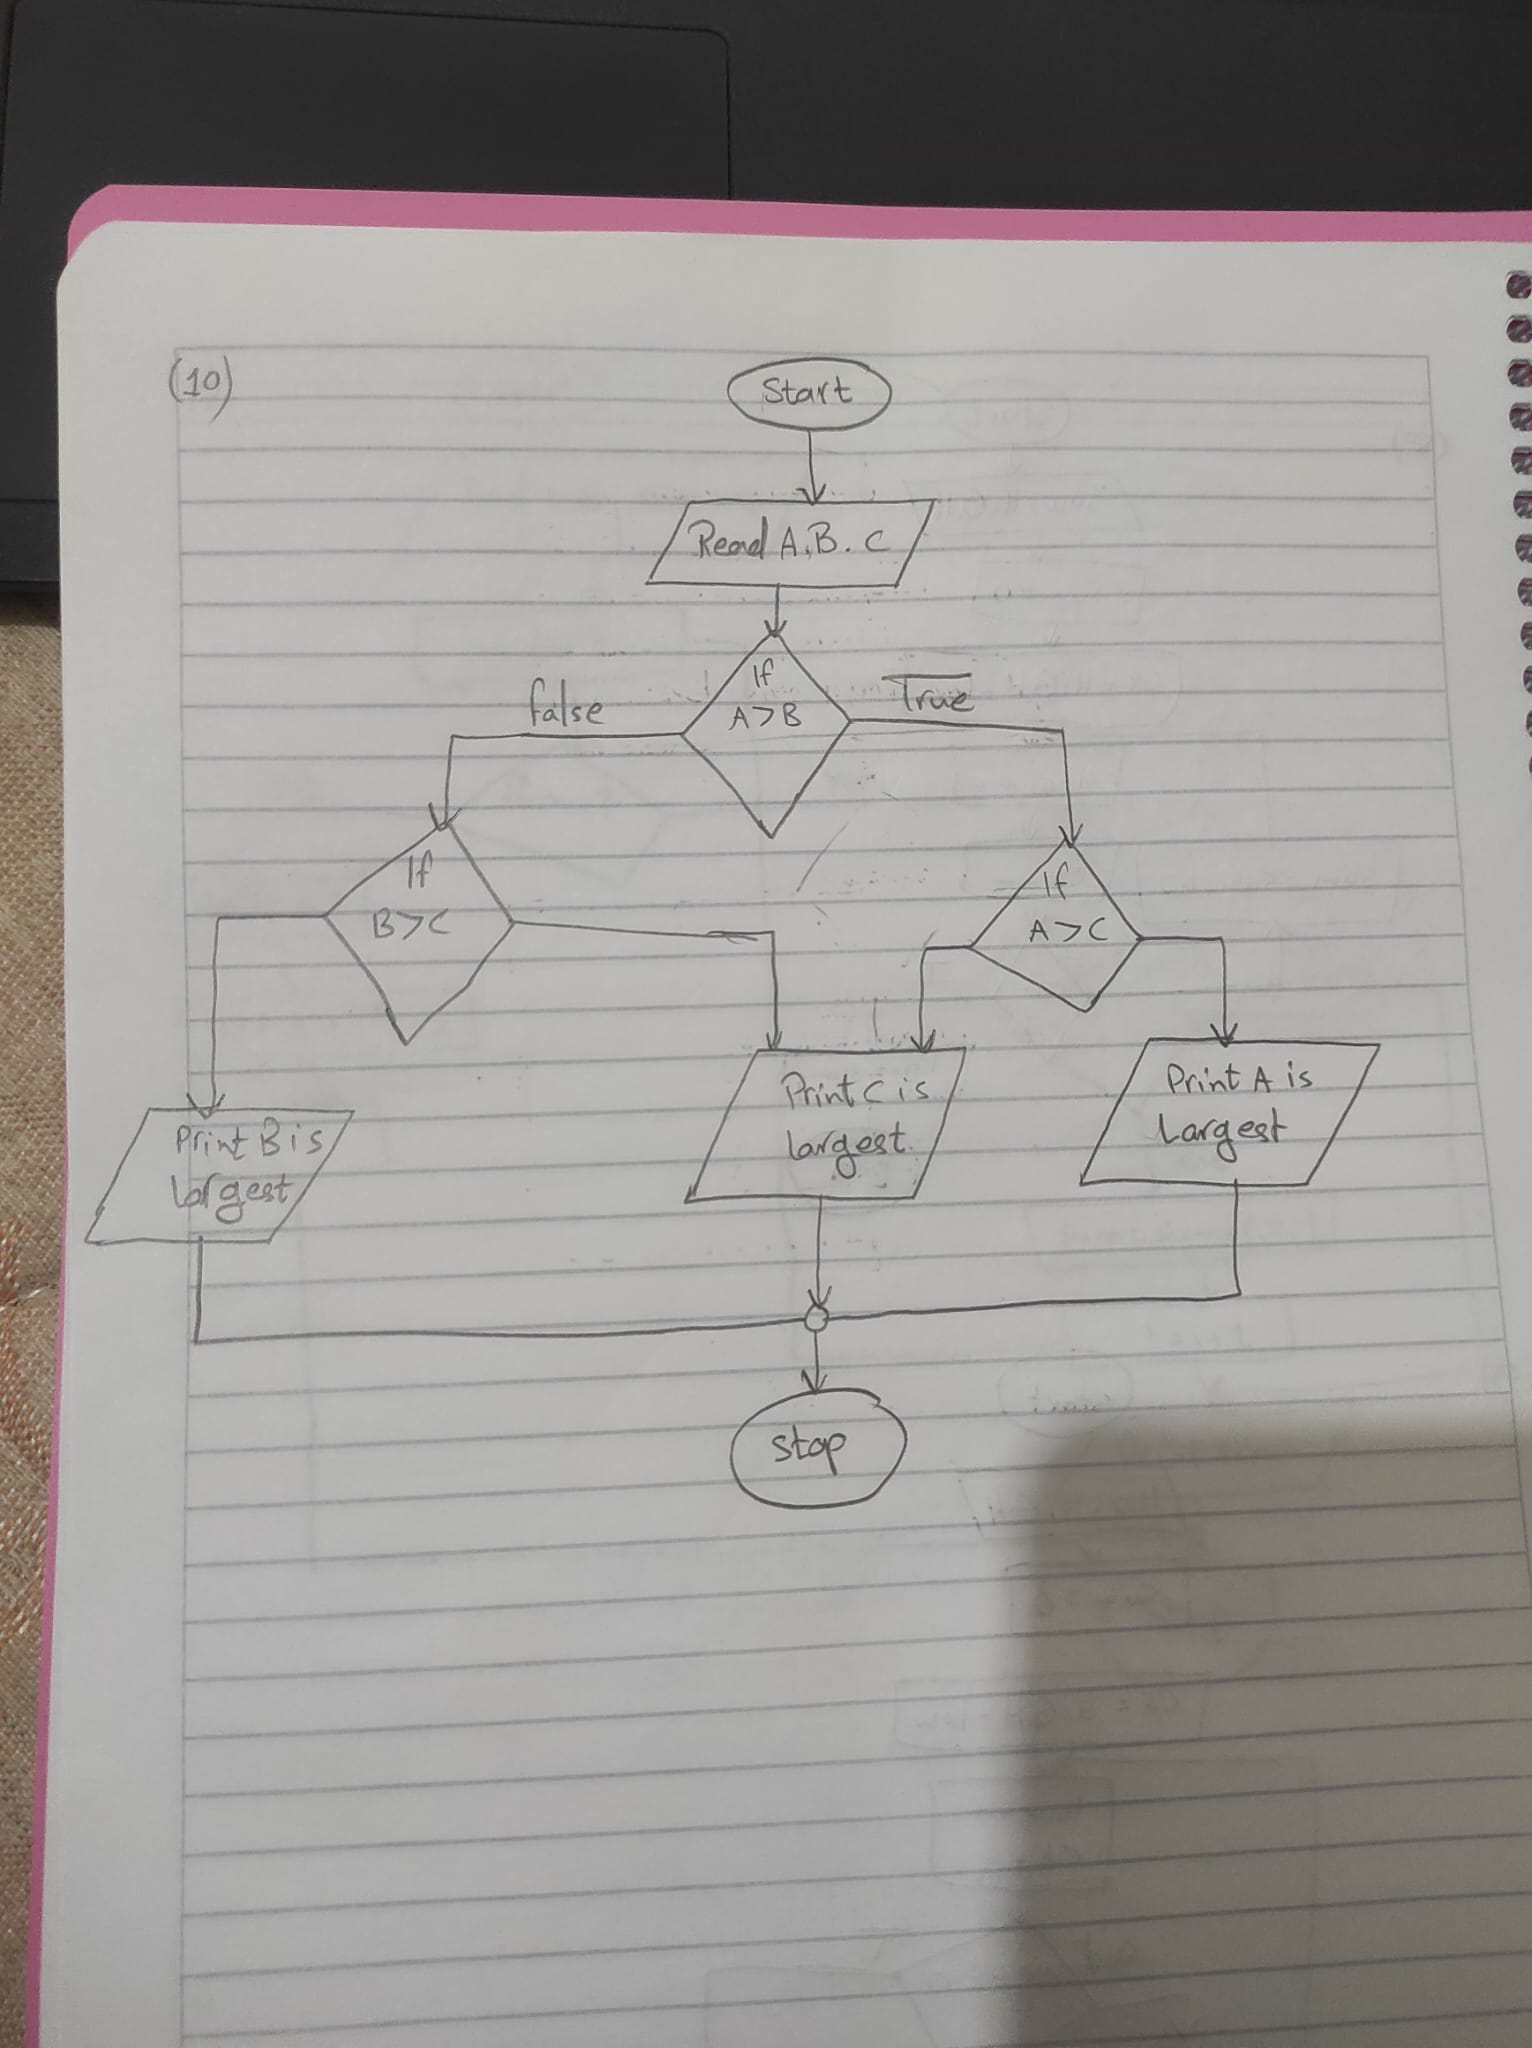 (10)
Start
Read A, B. C
If
A>B
false
True
If
B>C
If
A>C
Print B is
largest
Print C is
largest.
Print A is
Largest
stop